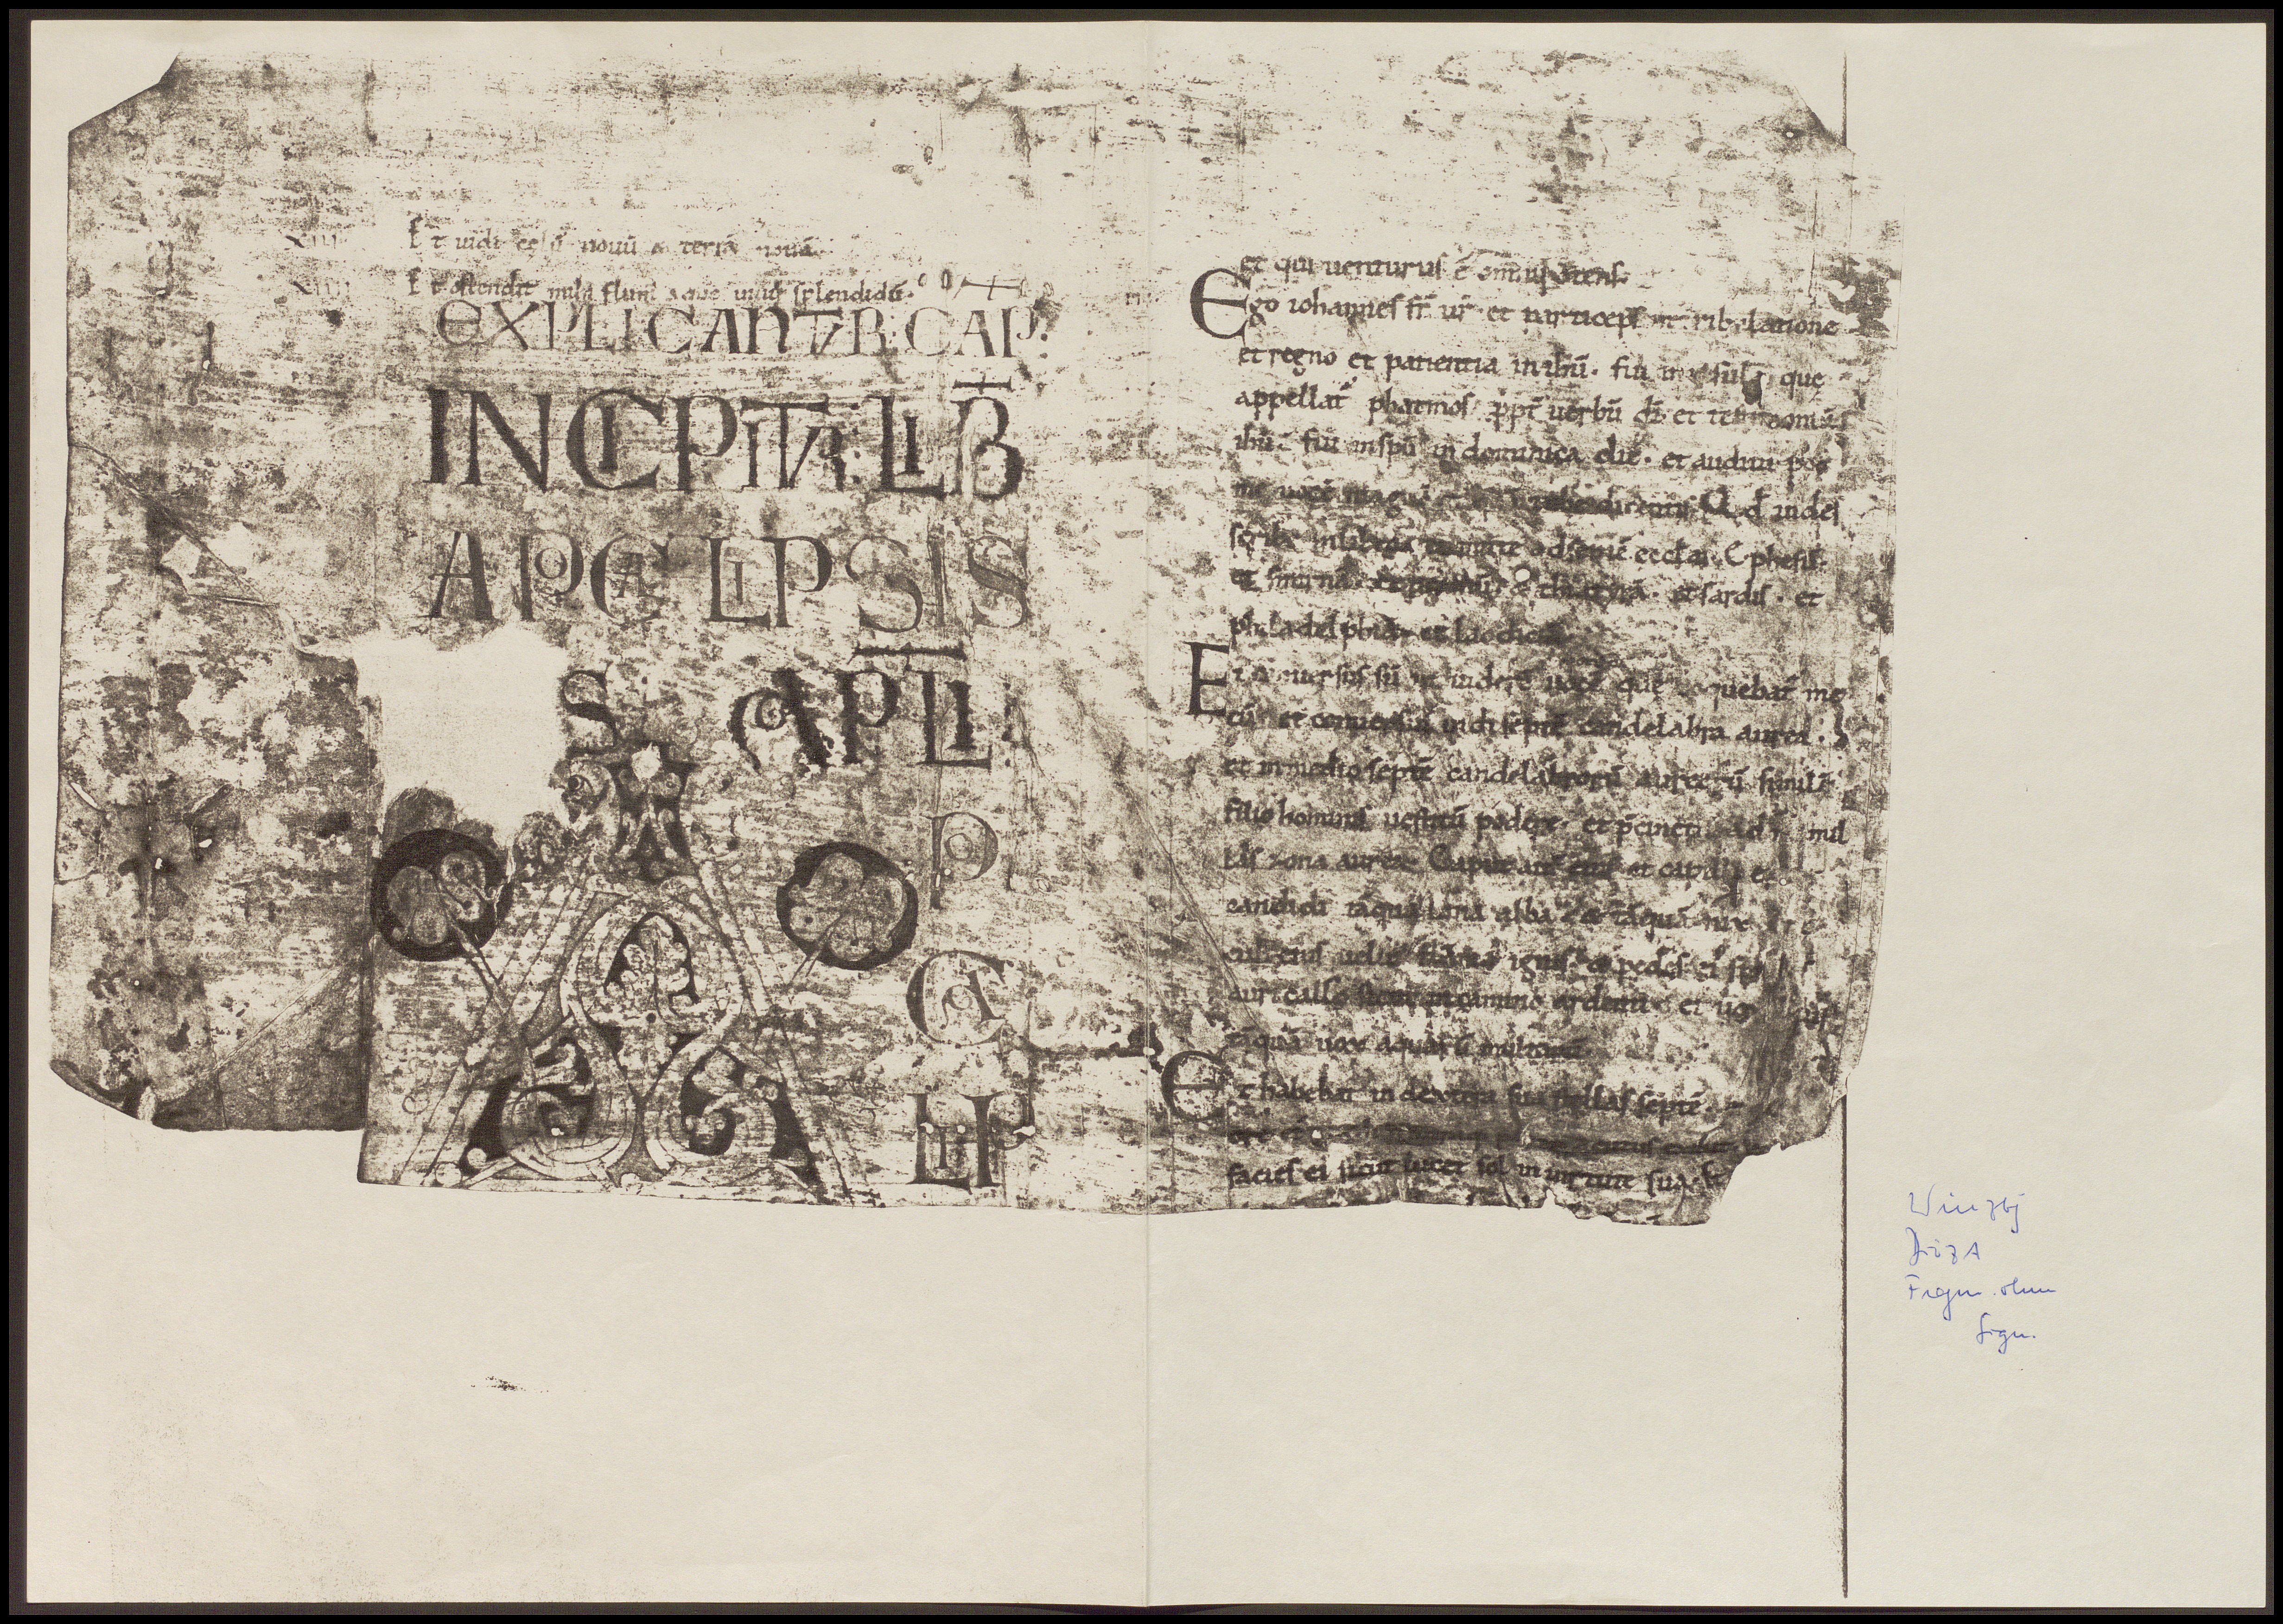 XIII Et uidi cęlū nouū & terrā nouā
XIIII Et ostendit mihi flum aque uiuę splendidū·
EXPLICANTUR CAP̄:
INCIPIT LIB̄
APOCALIPSIS
S· IOAP̄LI:
A
PO
CA
LIP
et qui uenturus ē omīps
Ego iohannes fr̄ ur̄ et particeps in tribulatione
et regno et patientia in ihū· fui in insula que
appellat̄ phatmos ꝓpt̄ uerbū dī et testimoniū
ihū· fui in spū in dominica die· et audiui post
me uocē magnā Qd uides
scribe in libro et mitte septē eccl̄iis· Ephesū·
et smirnā & thiatyrā· et sardis· et
philadelphiā et laodiciā
Et conuersus sū ut uiderē uocē que loquebat̄ me
cū· et conuersus uidi septē candelabra aurea·
et in medio septē candelabrorū aureorū similē
filio hominis uestitū podere· et p̄cinctū ad mamil
las zona aurea Caput aut̄ eius et capilli e
candidi tāquā lana alba & tāquā nix
culi eius uelut flāma ignis & pedes ei
auricalco sicut in camino ardenti· et uox
tāquā uox aquarū multarū
Et habebat in dextera sua stellas septē·
facies ei sicut lucet sol in uirtute sua·
Würzbg
DiözA
Fragm. ohne
Sign.